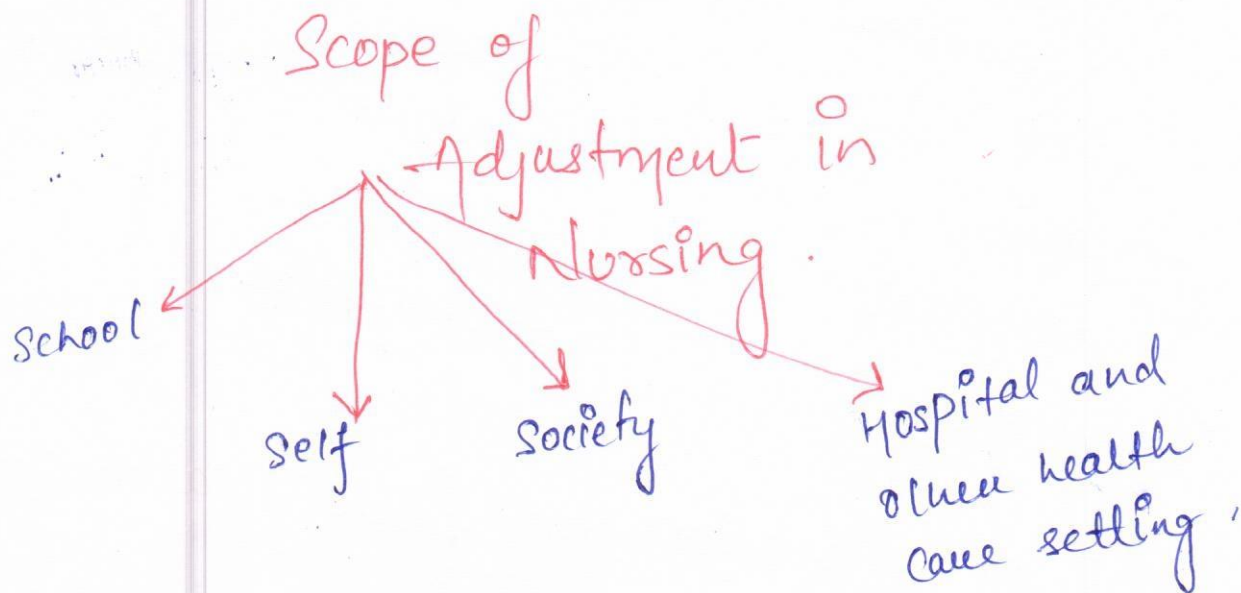 Scope of
Adjustment in
Nursing.
School
Self
Society
Hospital and
other health
care setting.